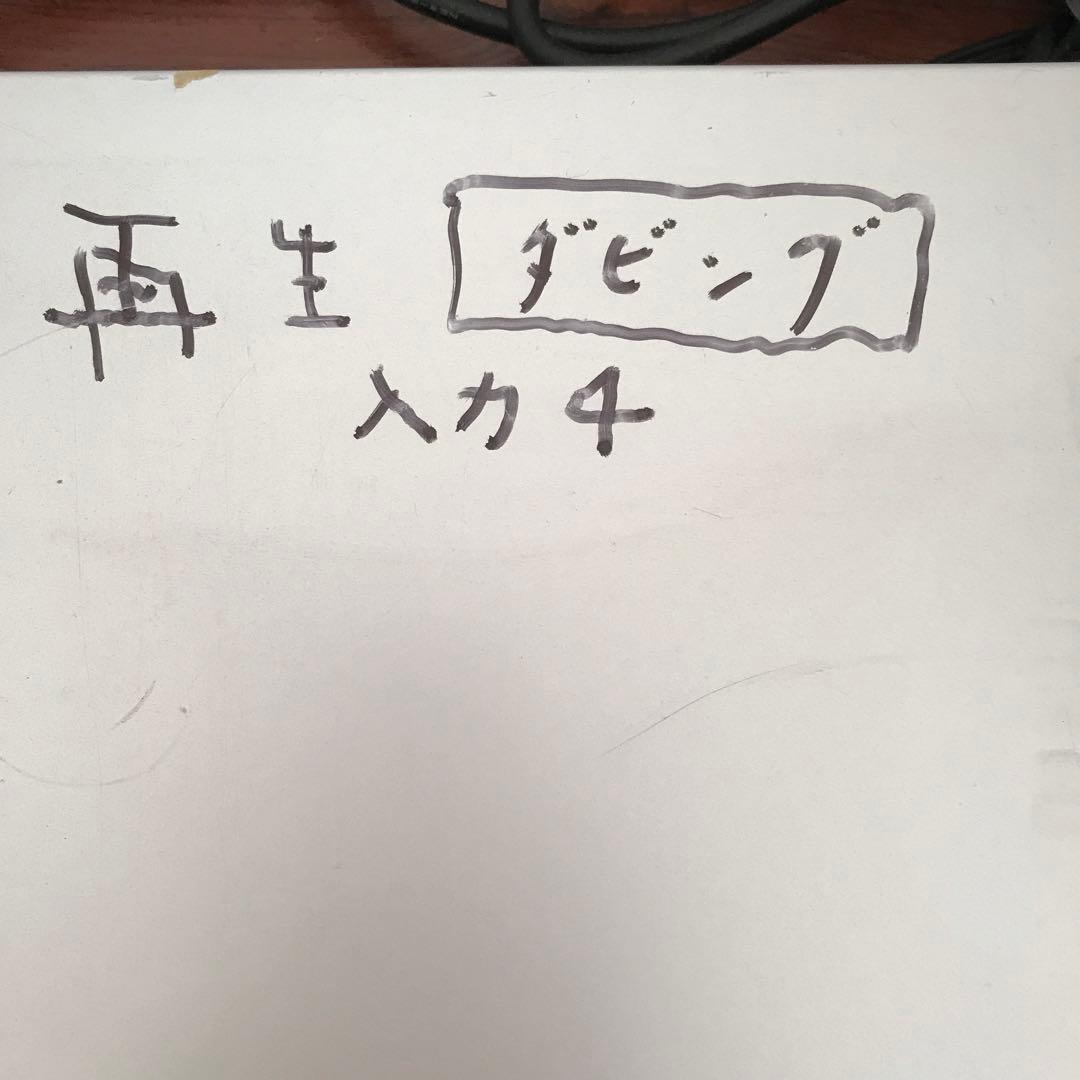 再生 ダビング
入力4